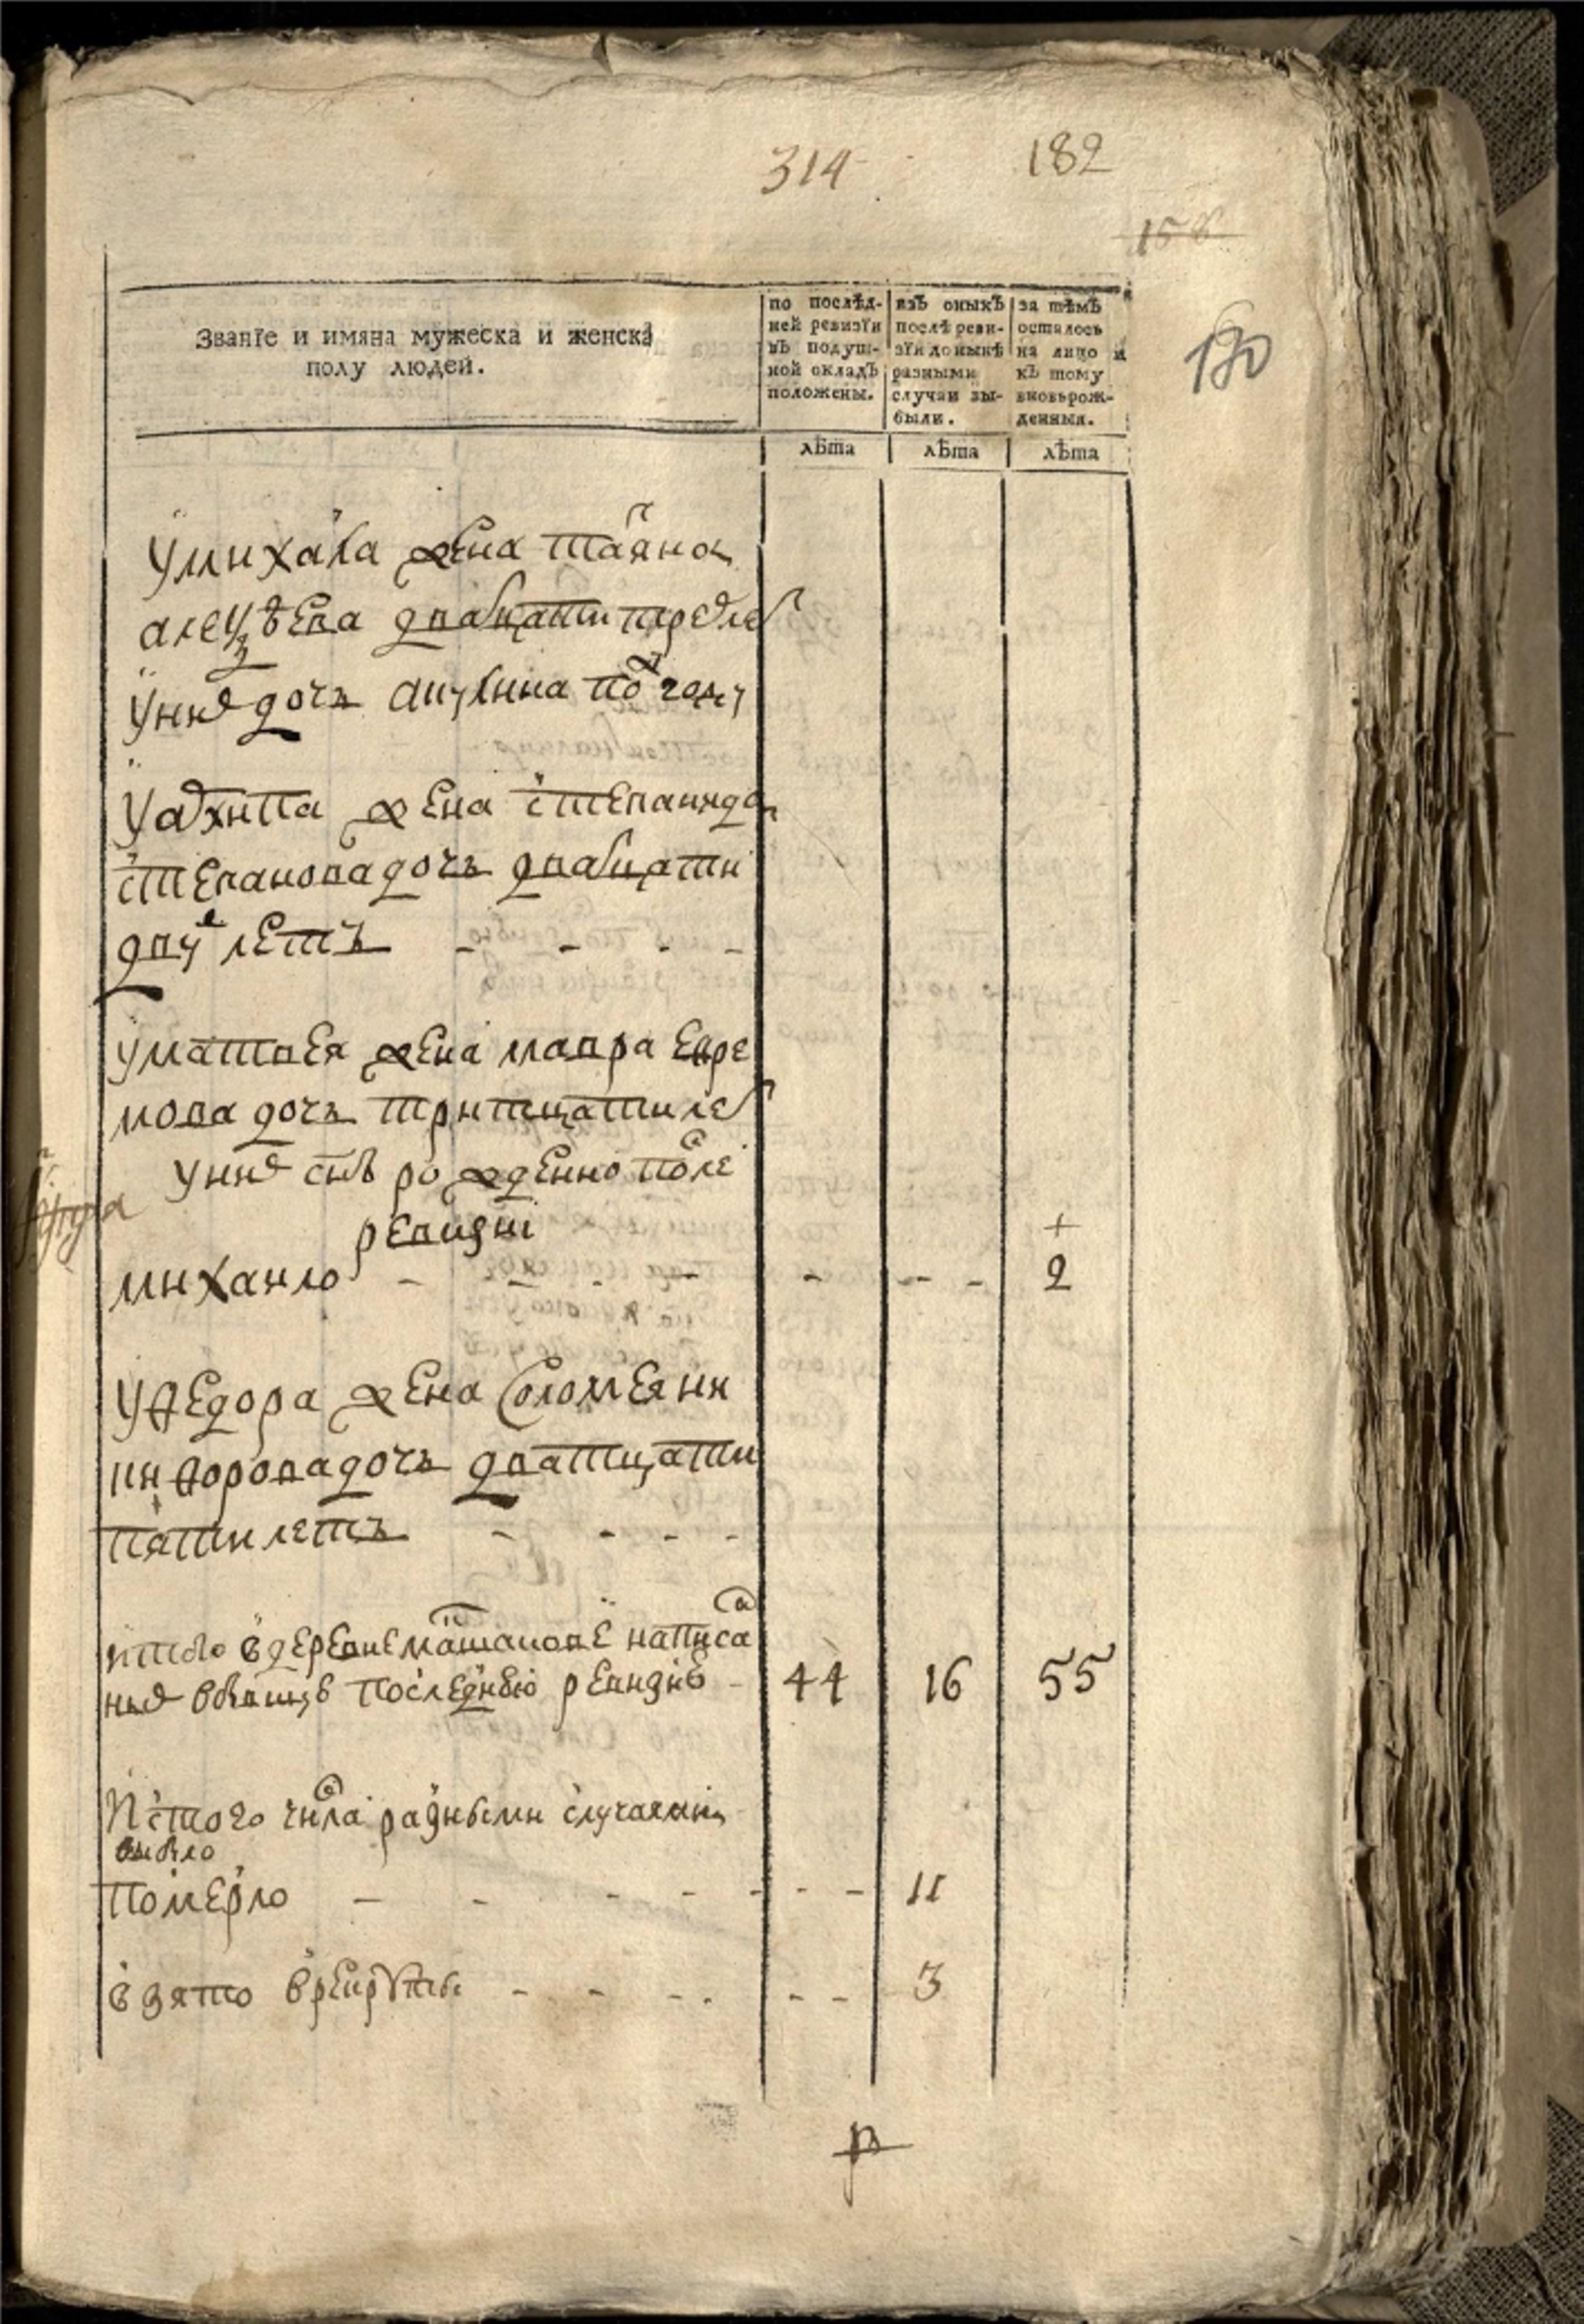 314 182
158
180
Званїе и имяна мужеска и женска
полу людей.
по послѣд-
ней ревизїи
въ подуш-
ной окладъ
положены.
изъ оныхъ
послѣ реви-
зїи до нынѣ
разными
случаи вы-
были.
за тѣмъ
осталось
на лицо и
къ тому
вновьрож-
денныя.
лѣта лѣта лѣта
у михаила жена татяна
двадцати трех лет
у них дочь акулина по году
у архипа жена степанида
степанова дочь двадцати
двух летъ - - - -
у матвея жена мавра евре
мова дочь тритцати лет
у них снъ рожденно после
ревизиї +
михаило - - - - - - - 2
у федора жена соломеяни
кифорова дочь дватцати
пяти летъ - - - -
итого в деревне написа
ные бывшую последнюю ревизию - 44 16 55
Ис того числа разными случаями
выбыло
померло - - - - - - - 11
взято в рекруты - - - - - - 3